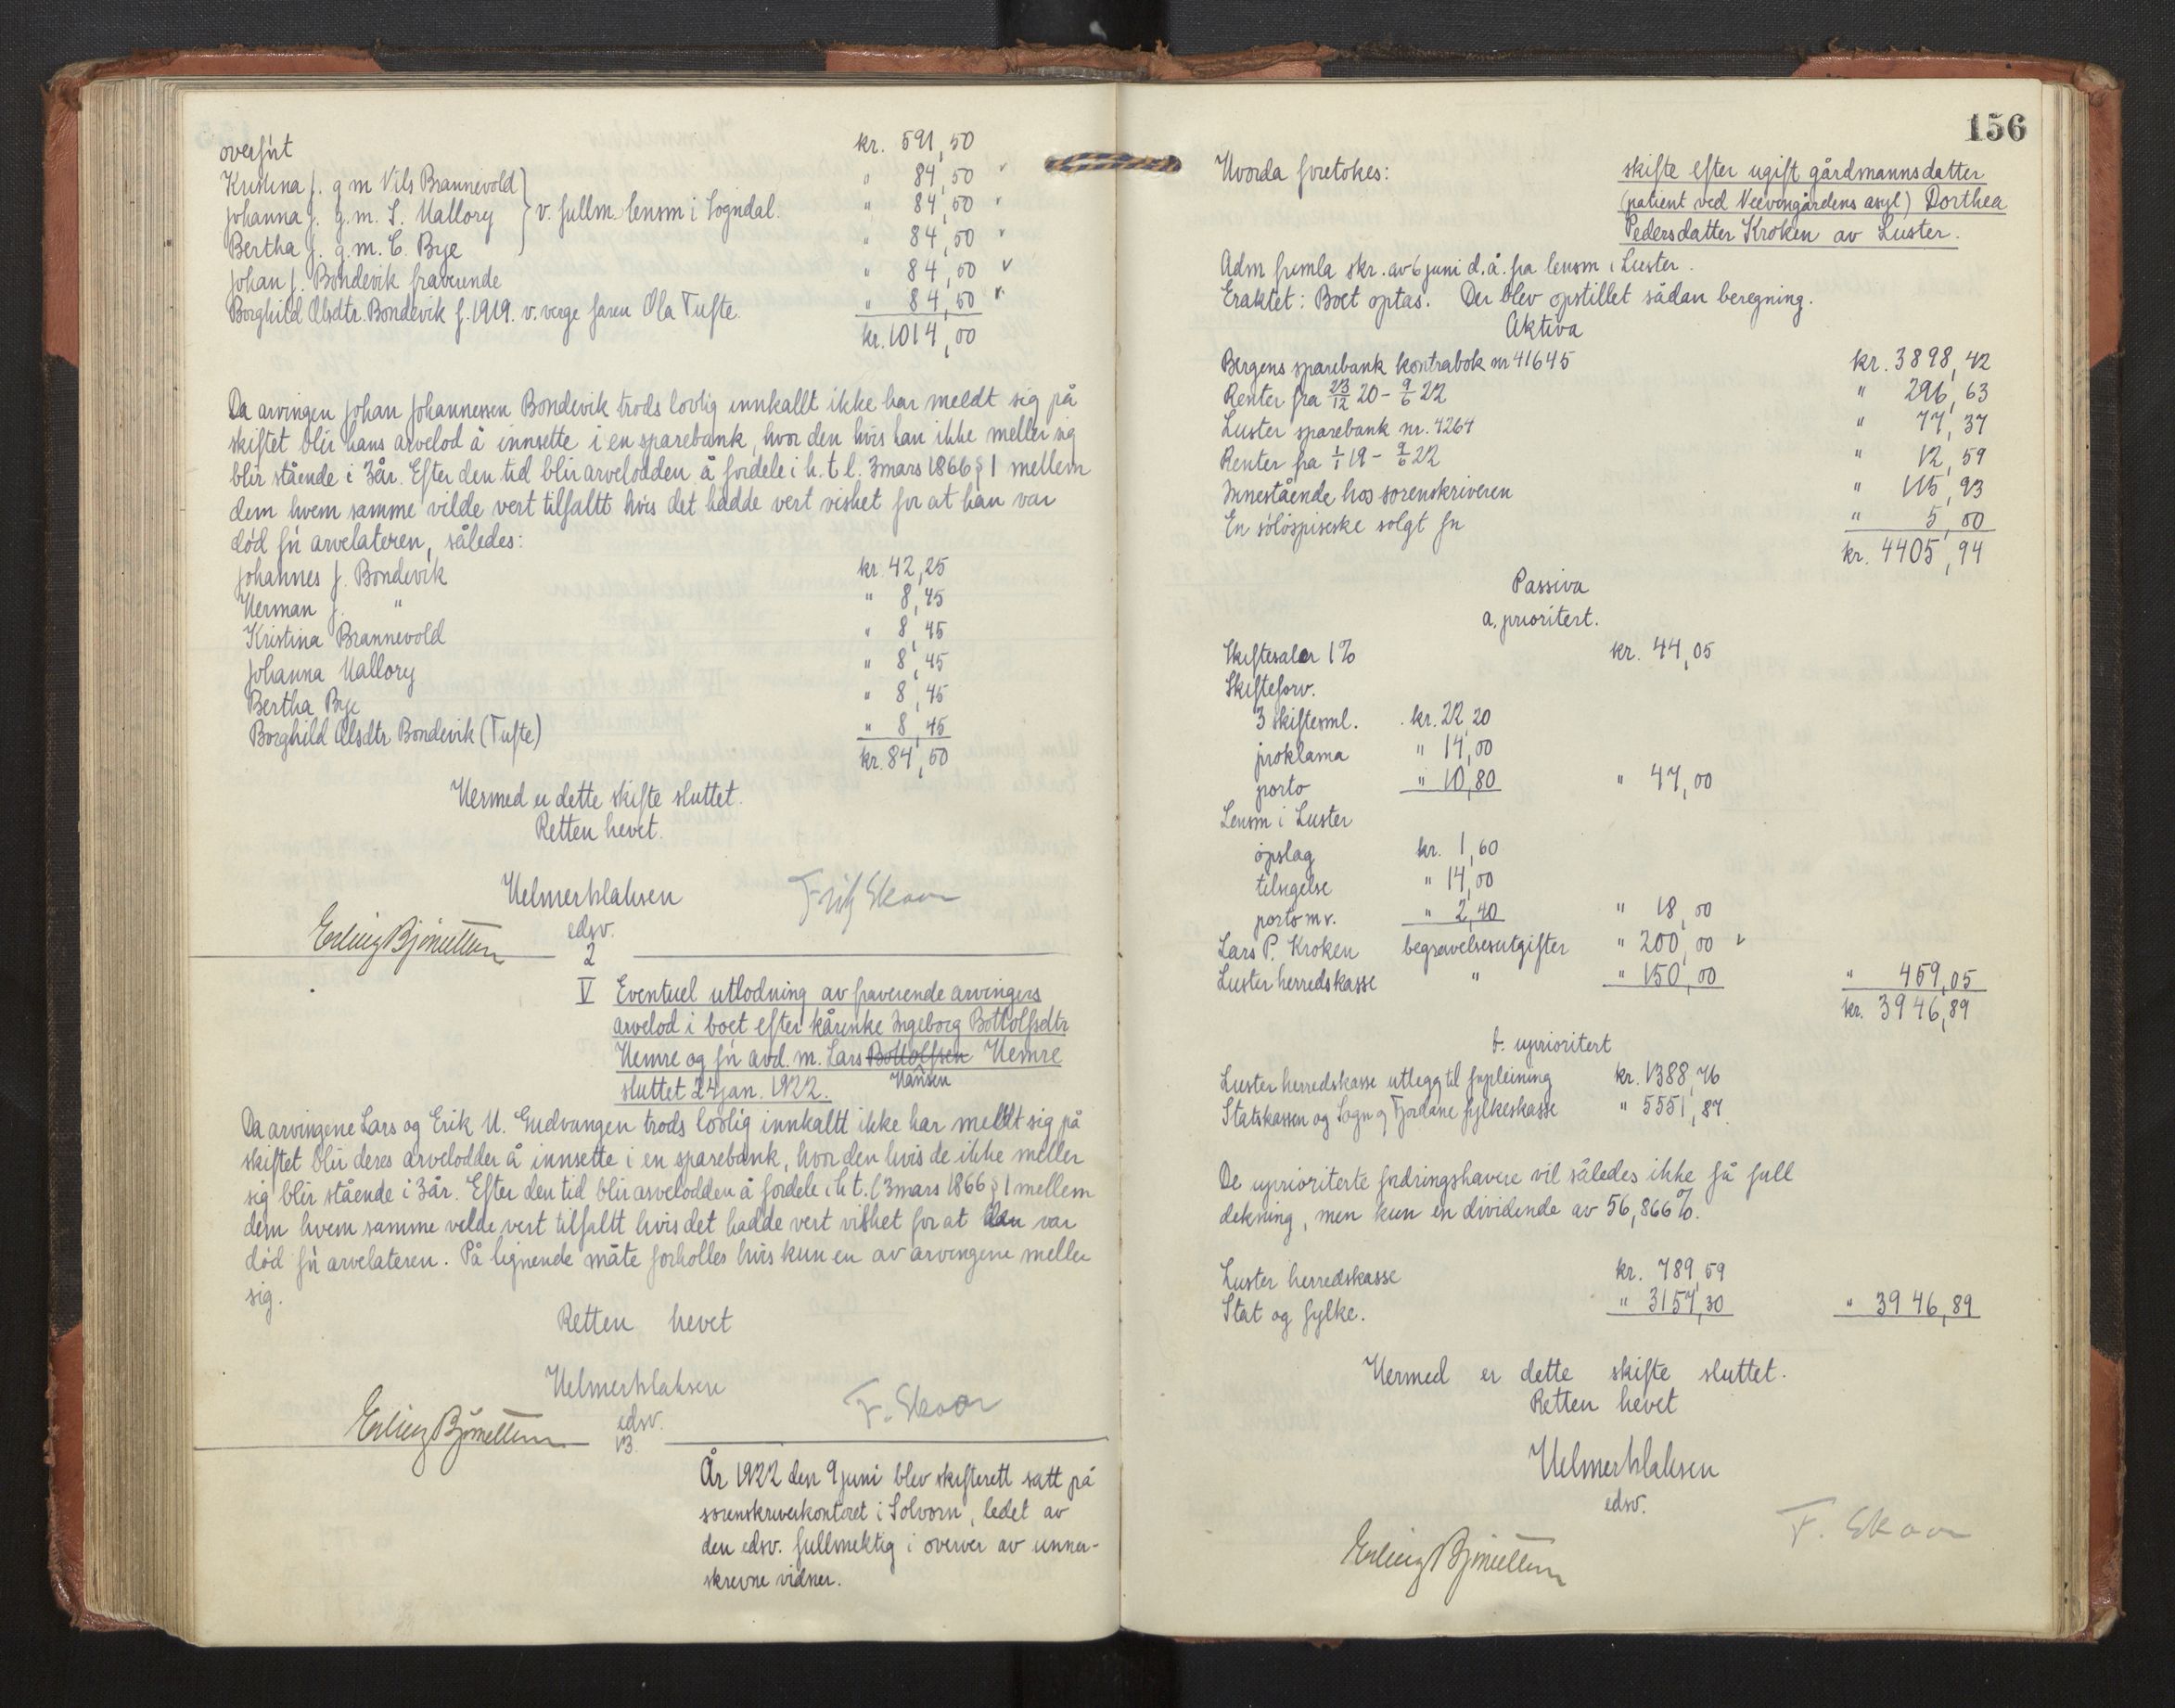 overført kr. 591,50
Kristina J. g m Nils Brannevold " 84,50
Johanna J. g.m. S. Hallory v. fullm lensm i Sogndal. " 84,50
Bertha J. g.m. C. Bye " 84,50
Johan J. Bondevik fraverende " 84,50
Borghild Olsdtr. Bondevik f. 1919. v. verge faren Ola Tufte. " 84,50
kr. 1014,00
Da arvingen Johan Johannessen Bondevik trods lovlig innkallt ikke har meldt sig på
skiftet blir hans arvelod å innsette i en sparebank, hvor den hvis han ikke meller sig
blir stående i 3 år. Efter den tid blir arvelodden å fordele i h. t l. 3 mars 1866 § 1 mellem
dem hvem samme vilde vert tilfaltt hvis det hadde vert visshet for at han var
død før arvelateren, således:
Johannes J. Bondevik kr. 42,25
Herman J. " " 8,45
Kristina Brannevold " 8,45
Johanna Hallory " 8,45
Bertha Bye " 8,45
Borghild Olsdtr Bondevik (Tufte) " 8,45
kr. 84,50
Hermed er dette skifte sluttet.
Retten hevet.
Helmer Klaksen Fritz Skaar
edsv.
Erling Bjørnetun
2
V Eventuel utlodning av fraverende arvingers
arvelod i boet efter kårenke Ingeborg Bottolfsdtr
Hemre og før avd. m. Lars Bottolfsen Hemre
Hansen
sluttet 24 jan. 1922.
Da arvingene Lars og Erik H. Gudvangen trods lovlig innkaltt ikke har meldt sig på
skiftet blir deres arvelodder å innsette i en sparebank, hvor den hvis de ikke meller
sig blir stående i 3 år. Efter den tid blir arvelodden å fordele i h t. l 3 mars 1866 § 1 mellem
dem hvem samme vilde vert tilfaltt hvis det hadde vert visshet for at han var
død før arvelateren. På lignende måte forholles hvis kun en av arvingene meller
sig.
Retten hevet
Helmer Klaksen F. Skaar
edsv.
Erling Bjørnetun
13
År 1922 den 9 juni blev skifterett satt på
sorenskriverkontoret i Solvorn, ledet av
den edsv. fullmektig i overver av unner-
skrevne vidner.
156
Hvorda foretokes: skifte efter ugift gårdmannsdatter
(patient ved Neevengårdens asyl) Dorthea
Pedersdatter Kroken av Luster.
Adm fremla skr. av 6 juni d. å. fra lensm i Luster.
Eraktet: Boet optas. Der blev opstillet sådan beregning.
Aktiva
Bergens sparebank kontrabok nr 41645 kr. 3898,42
Renter fra 23/12 20 - 9/6 22 " 296,63
Luster sparebank nr. 4264 " 77,37
Renter fra 1/1 19 - 9/6 22 " 12,59
Innestående hos sorenskriveren " 115,93
En sølvspiseske solgt for " 5,00
kr. 4405,94
Passiva
a. prioritert.
Skiftesaler 1% kr. 44,05
Skifteforv.
3 skiftesml. kr. 22,20
proklama " 14,00
porto " 10,80 " 47,00
Lensm i Luster
opslag kr. 1,60
tilsigelse " 14,00
porto m v. " 2,40 " 18,00
Lars P. Kroken begravelsesutgifter " 200,00
Luster herredskasse " " 150,00 " 459,05
kr. 3946,89
b. uprioritert
Luster herredskasse utlegg til forpleining kr. 1388,76
Statskassen og Sogn og Fjordane fylkeskasse " 5551,87
De uprioriterte fordringshavere vil således ikke få full
dekning, men kun en dividende av 56,866%.
Luster herredskasse kr. 789,59
Stat og fylke. " 3157,30 " 3946,89
Hermed er dette skifte sluttet.
Retten hevet
Helmer Klaksen
edsv.
F. Skaar
Erling Bjørnetun